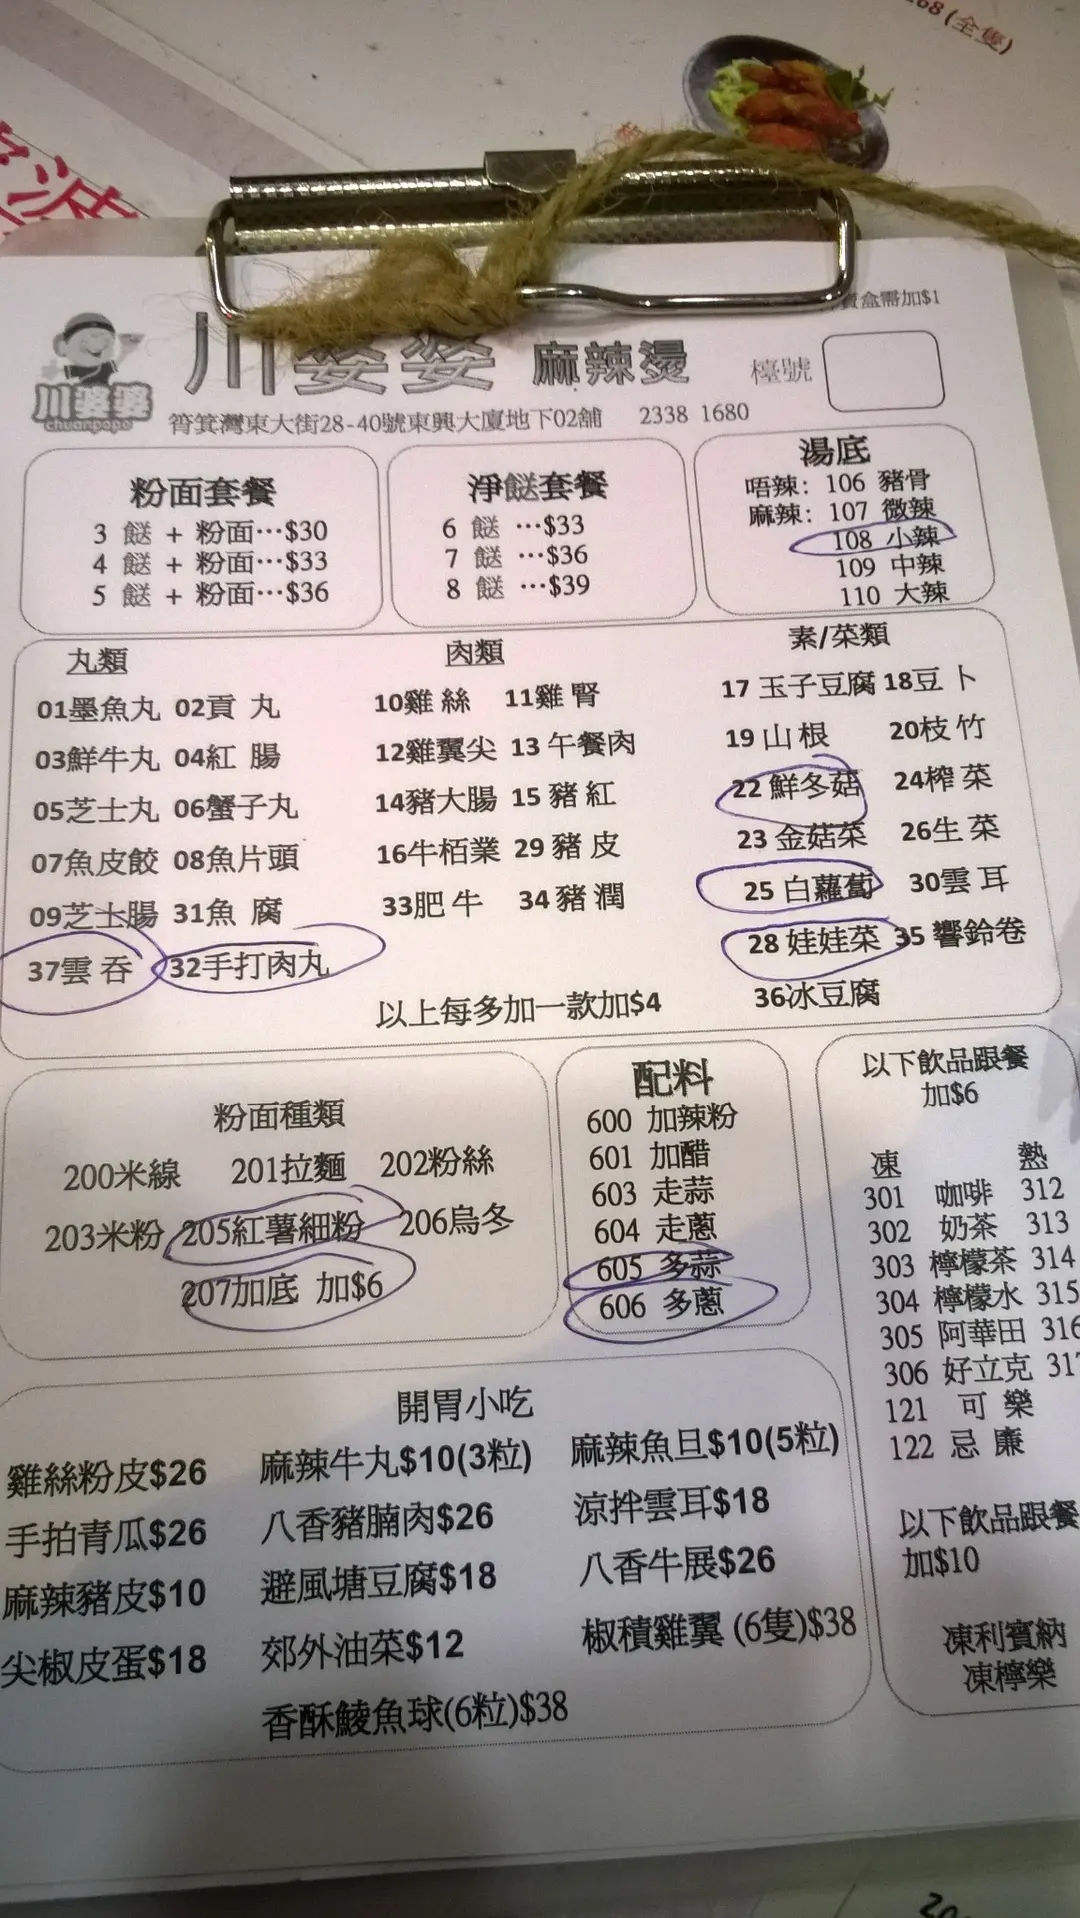 68(全隻)
盒需加$1
川婆婆 麻辣燙 檯號
川婆婆
chuanpopo
筲箕灣東大街28-40號東興大廈地下02舖 2338 1680
粉面套餐
3 餸 + 粉面…$30
4 餸 + 粉面…$33
5 餸 + 粉面…$36
淨餸套餐
6 餸 …$33
7 餸 …$36
8 餸 …$39
湯底
唔辣: 106 豬骨
麻辣: 107 微辣
108 小辣
109 中辣
110 大辣
丸類
01墨魚丸 02貢 丸
03鮮牛丸 04紅 腸
05芝士丸 06蟹子丸
07魚皮餃 08魚片頭
09芝士腸 31魚 腐
37雲 吞 32手打肉丸
肉類
10雞 絲 11雞 腎
12雞翼尖 13 午餐肉
14豬大腸 15 豬 紅
16牛栢業 29 豬 皮
33肥 牛 34 豬 潤
素/菜類
17 玉子豆腐 18豆 卜
19 山 根 20枝 竹
22 鮮冬菇 24榨 菜
23 金菇菜 26生 菜
25 白蘿蔔 30雲 耳
28 娃娃菜 35 響鈴卷
36冰豆腐
以上每多加一款加$4
粉面種類
200米線 201拉麵 202粉絲
203米粉 205紅薯細粉 206烏冬
207加底 加$6
配料
600 加辣粉
601 加醋
603 走蒜
604 走蔥
605 多蒜
606 多蔥
以下飲品跟餐
加$6
凍 熱
301 咖啡 312
302 奶茶 313
303 檸檬茶 314
304 檸檬水 315
305 阿華田 316
306 好立克 317
121 可 樂
122 忌 廉
以下飲品跟餐
加$10
凍利賓納
凍檸樂
開胃小吃
雞絲粉皮$26 麻辣牛丸$10(3粒) 麻辣魚旦$10(5粒)
手拍青瓜$26 八香豬腩肉$26 涼拌雲耳$18
麻辣豬皮$10 避風塘豆腐$18 八香牛展$26
尖椒皮蛋$18 郊外油菜$12 椒積雞翼 (6隻)$38
香酥鯪魚球(6粒)$38